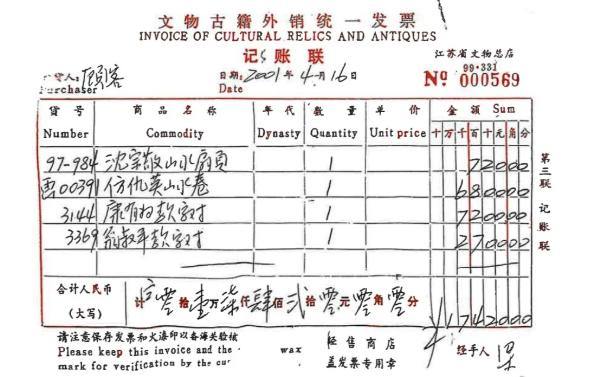 文物古籍外销统一发票
INVOICE OF CULTURAL RELICS AND ANTIQUES
记账联
江苏省文物总店
99·331
货人: 顾客
日期: 2001年4月16日
Purchaser
Date
No 000569
货号 商品名称 年代 数量 单价 金额 Sum
Number Commodity Dynasty Quantity Unit price 十万千百十元角分
97-984 沈宗敬山水扇頁 1 72000
00391 仿仇英山水卷 1 680000
3144 康有为款字对 1 720000
3369 翁叔平款字对 1 270000
合计人民币
(大写)
计 零拾壹万柒仟肆佰贰拾零元零角零分 ¥1742000
第三联 记账联
请注意保存发票和火漆印以备海关验核
Please keep this invoice and the wax
mark for verification by the
经售商店
盖发票专用章
经手人 梁